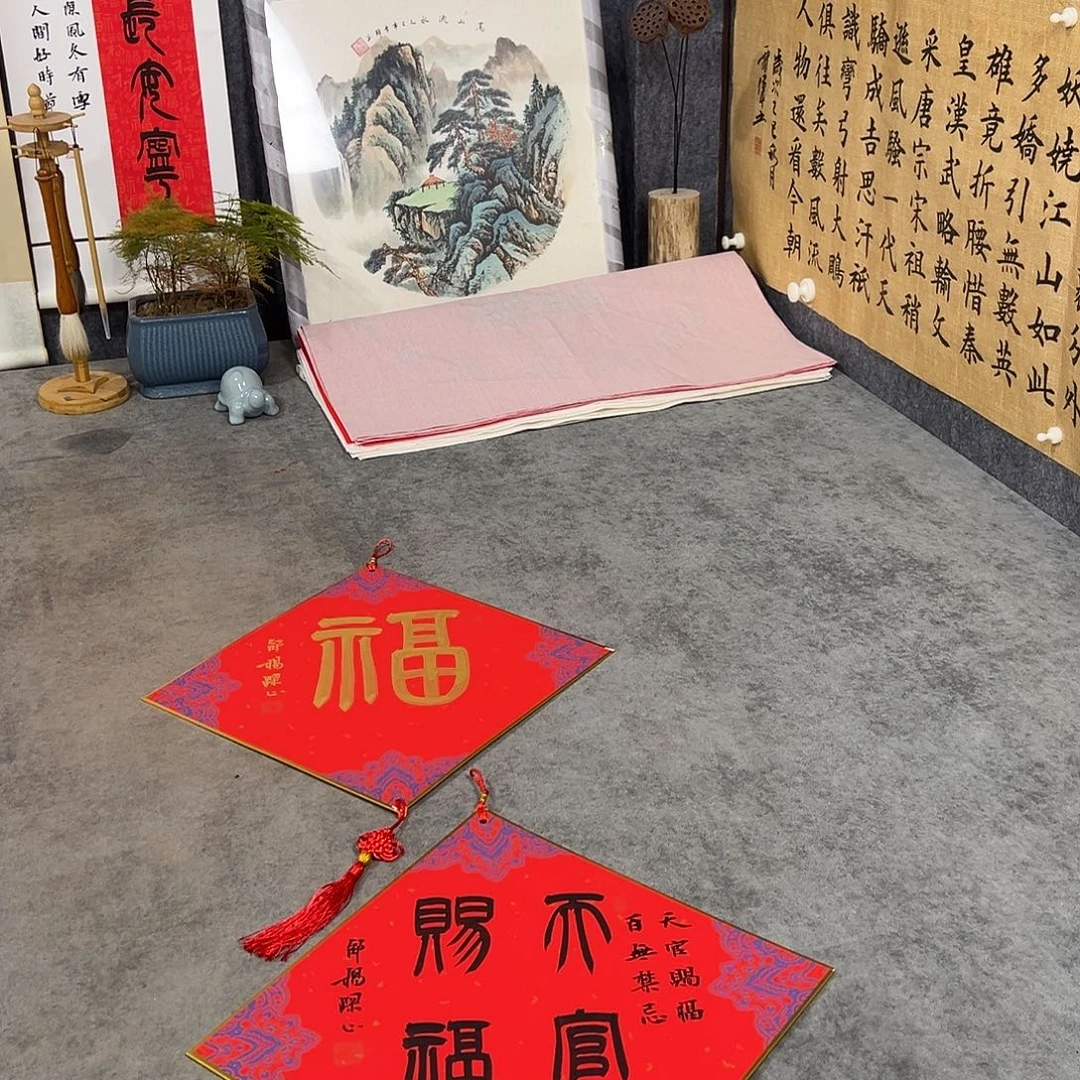 人間好時節
風冬有雪
高山流水
妖嬈江山如此
多嬌引無數英
雄竟折腰惜秦
皇漢武略輸文
采唐宗宋祖稍
遜風騷一代天
驕成吉思汗祇
識彎弓射大鵰
俱往矣數風流
人物還看今朝
福
天官賜福
百無禁忌
天官
賜福